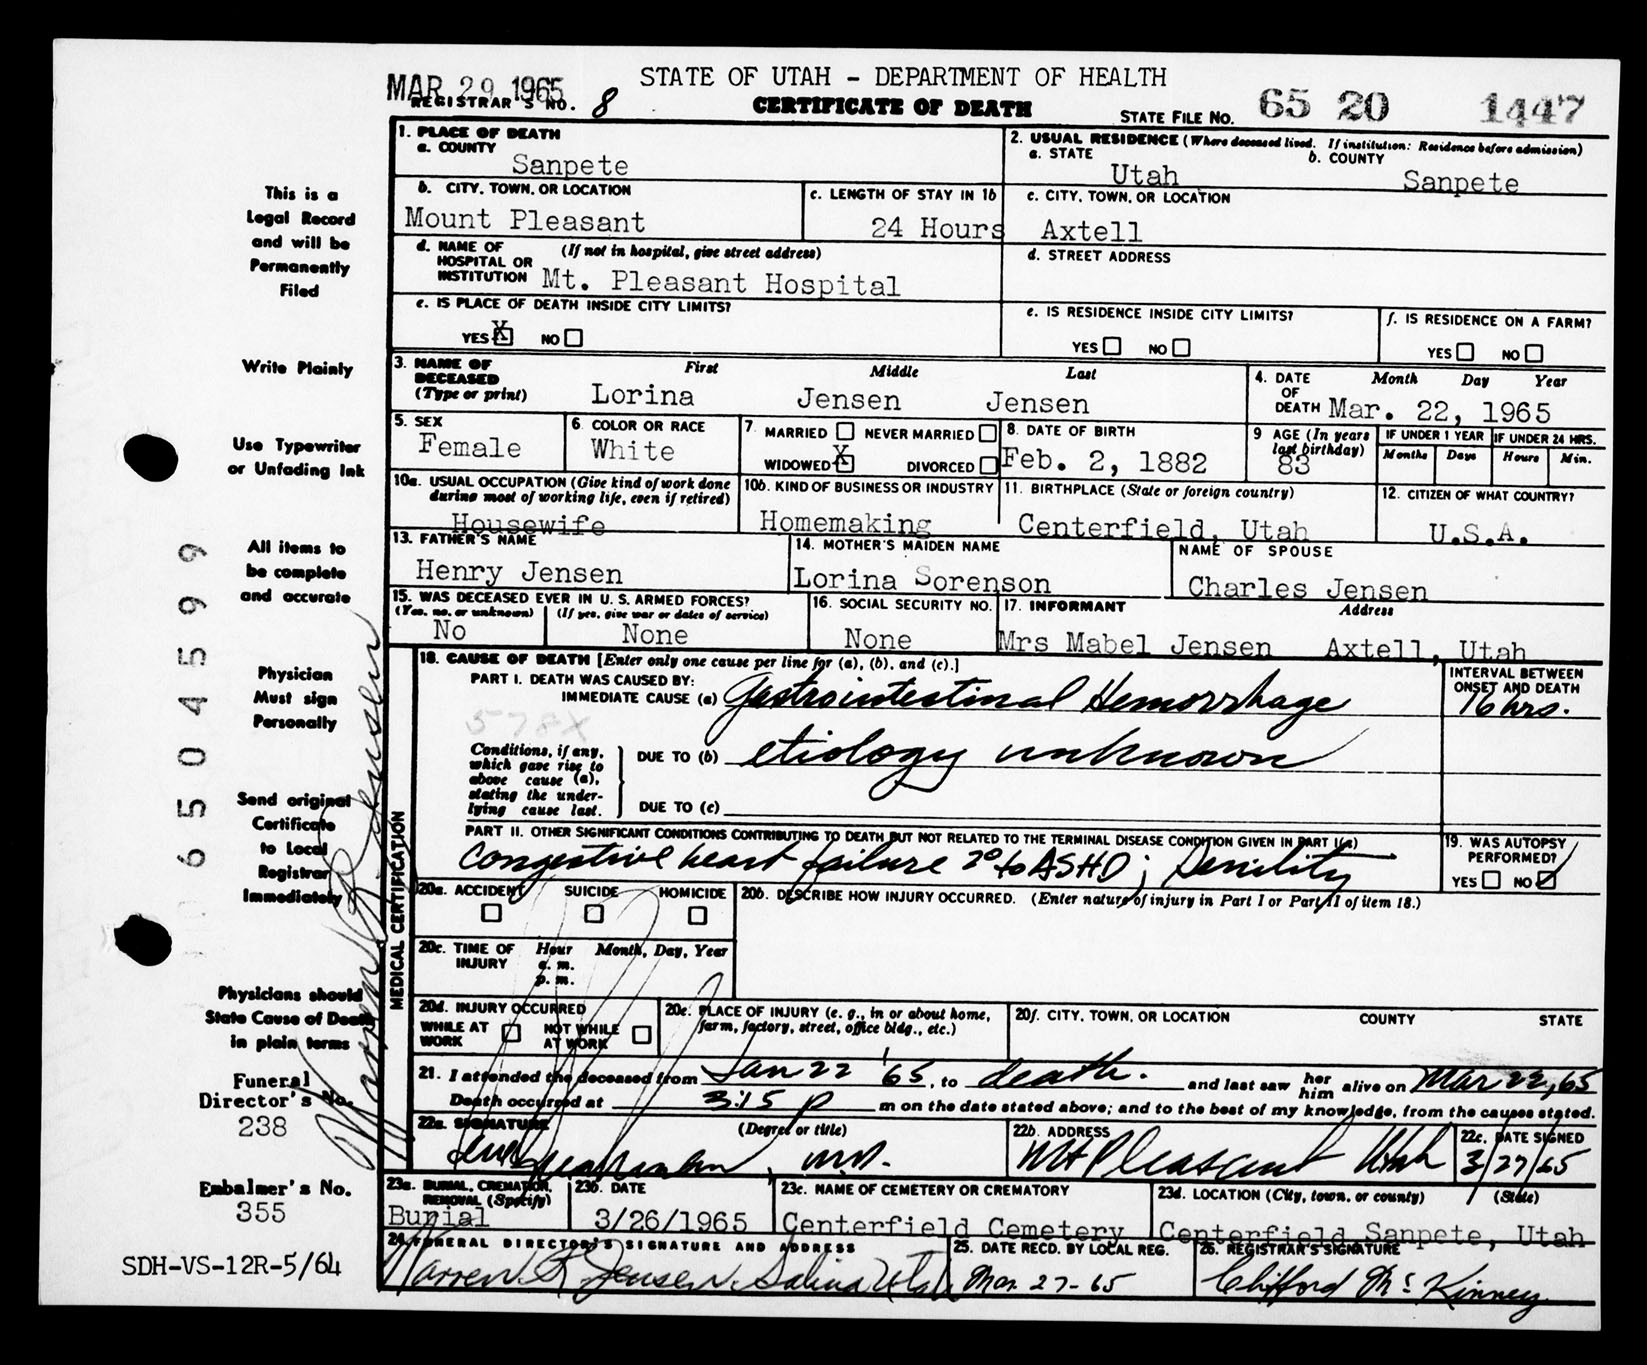 MAR 29 1965
STATE OF UTAH - DEPARTMENT OF HEALTH
REGISTRAR'S NO. 8
CERTIFICATE OF DEATH
STATE FILE NO. 65 20 1447
1. PLACE OF DEATH
a. COUNTY
Sanpete
2. USUAL RESIDENCE (Where deceased lived. If institution: Residence before admission)
a. STATE
Utah
b. COUNTY
Sanpete
b. CITY, TOWN, OR LOCATION
Mount Pleasant
c. LENGTH OF STAY IN 1b
24 Hours
c. CITY, TOWN, OR LOCATION
Axtell
d. NAME OF HOSPITAL OR INSTITUTION
(If not in hospital, give street address)
Mt. Pleasant Hospital
d. STREET ADDRESS
e. IS PLACE OF DEATH INSIDE CITY LIMITS?
YES X NO
e. IS RESIDENCE INSIDE CITY LIMITS?
YES NO
f. IS RESIDENCE ON A FARM?
YES NO
3. NAME OF DECEASED
(Type or print)
First Middle Last
Lorina Jensen Jensen
4. DATE OF DEATH
Month Day Year
Mar. 22, 1965
5. SEX
Female
6. COLOR OR RACE
White
7. MARRIED NEVER MARRIED
WIDOWED X DIVORCED
8. DATE OF BIRTH
Feb. 2, 1882
9 AGE (In years last birthday)
83
IF UNDER 1 YEAR
Months Days
IF UNDER 24 HRS.
Hours Min.
10a. USUAL OCCUPATION (Give kind of work done during most of working life, even if retired)
Housewife
10b. KIND OF BUSINESS OR INDUSTRY
Homemaking
11. BIRTHPLACE (State or foreign country)
Centerfield, Utah
12. CITIZEN OF WHAT COUNTRY?
U.S.A.
13. FATHER'S NAME
Henry Jensen
14. MOTHER'S MAIDEN NAME
Lorina Sorenson
NAME OF SPOUSE
Charles Jensen
15. WAS DECEASED EVER IN U. S. ARMED FORCES?
(Yes, no, or unknown) (If yes, give war or dates of service)
No None
16. SOCIAL SECURITY NO.
None
17. INFORMANT Address
Mrs Mabel Jensen Axtell, Utah
MEDICAL CERTIFICATION
18. CAUSE OF DEATH [Enter only one cause per line for (a), (b), and (c).]
PART I. DEATH WAS CAUSED BY:
IMMEDIATE CAUSE (a) Gastrointestinal Hemorrhage
INTERVAL BETWEEN ONSET AND DEATH
16 hrs.
578X
Conditions, if any, which gave rise to above cause (a), stating the underlying cause last.
DUE TO (b) etiology unknown
DUE TO (c)
PART II. OTHER SIGNIFICANT CONDITIONS CONTRIBUTING TO DEATH BUT NOT RELATED TO THE TERMINAL DISEASE CONDITION GIVEN IN PART I(a)
Congestive heart failure 2° to ASHD; Senility
19. WAS AUTOPSY PERFORMED?
YES NO
20a. ACCIDENT SUICIDE HOMICIDE
20b. DESCRIBE HOW INJURY OCCURRED. (Enter nature of injury in Part I or Part II of item 18.)
20c. TIME OF INJURY
Hour Month, Day, Year
a. m.
p. m.
20d. INJURY OCCURRED
WHILE AT WORK NOT WHILE AT WORK
20e. PLACE OF INJURY (e. g., in or about home, farm, factory, street, office bldg., etc.)
20f. CITY, TOWN, OR LOCATION COUNTY STATE
21. I attended the deceased from Jan 22 '65, to death. and last saw her him alive on Mar 22, 65
Death occurred at 3:15 p m on the date stated above; and to the best of my knowledge, from the causes stated.
22a. SIGNATURE (Degree or title)
M.D.
22b. ADDRESS
Mt Pleasant Utah
22c. DATE SIGNED
3/27/65
23a. BURIAL, CREMATION, REMOVAL (Specify)
Burial
23b. DATE
3/26/1965
23c. NAME OF CEMETERY OR CREMATORY
Centerfield Cemetery
23d. LOCATION (City, town, or county) (State)
Centerfield Sanpete, Utah
24. FUNERAL DIRECTOR'S SIGNATURE AND ADDRESS
Warren R Jensen. Salina Utah
25. DATE RECD. BY LOCAL REG.
Mar 27-65
26. REGISTRAR'S SIGNATURE
Clifford McKinney
This is a
Legal Record
and will be
Permanently
Filed
Write Plainly
Use Typewriter
or Unfading Ink
All items to
be complete
and accurate
Physician
Must sign
Personally
Send original
Certificate
to Local
Registrar
Immediately
Physicians should
State Cause of Death
in plain terms
Funeral
Director's No.
238
Embalmer's No.
355
SDH-VS-12R-5/64
6504599
Warren R Jensen